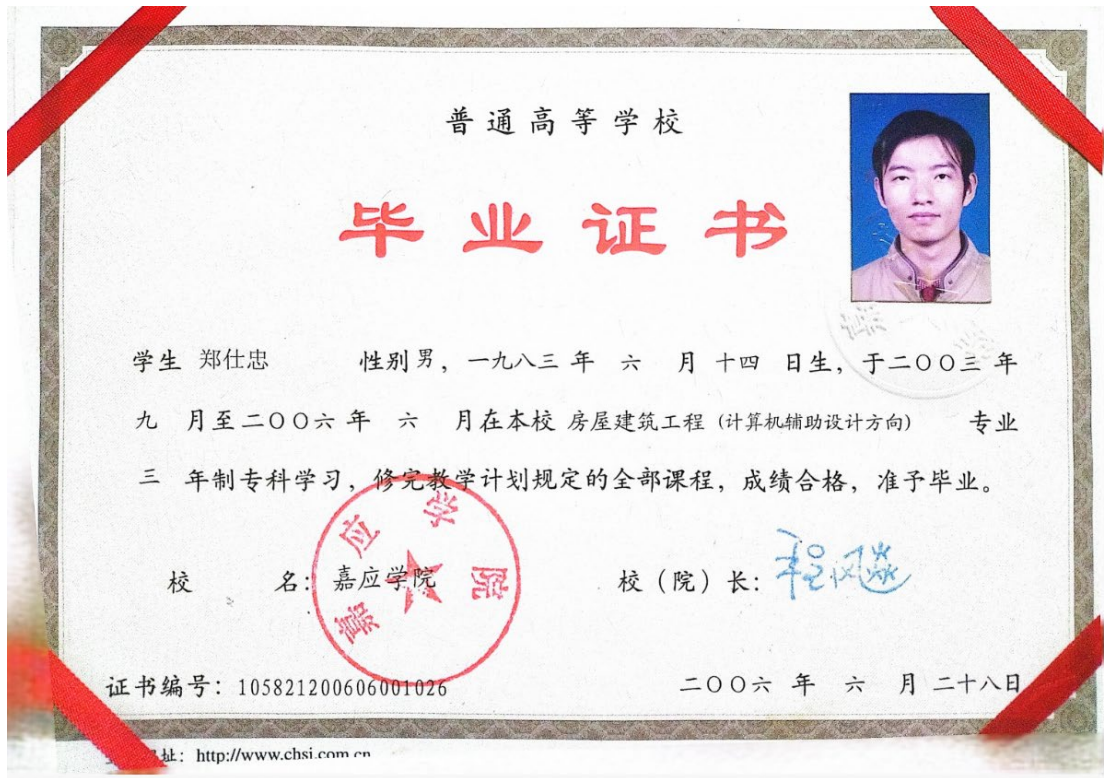 普通高等学校
毕业证书
学生 郑仕忠 性别男，一九八三 年 六 月 十四 日生，于二〇〇三 年
九 月至二〇〇六 年 六 月在本校 房屋建筑工程 (计算机辅助设计方向) 专业
三 年制专科学习，修完教学计划规定的全部课程，成绩合格，准予毕业。
校 名：嘉应学院 校（院）长：
嘉应学院
证书编号：105821200606001026 二〇〇六 年 六 月 二十八日
址：http://www.chsi.com.cn